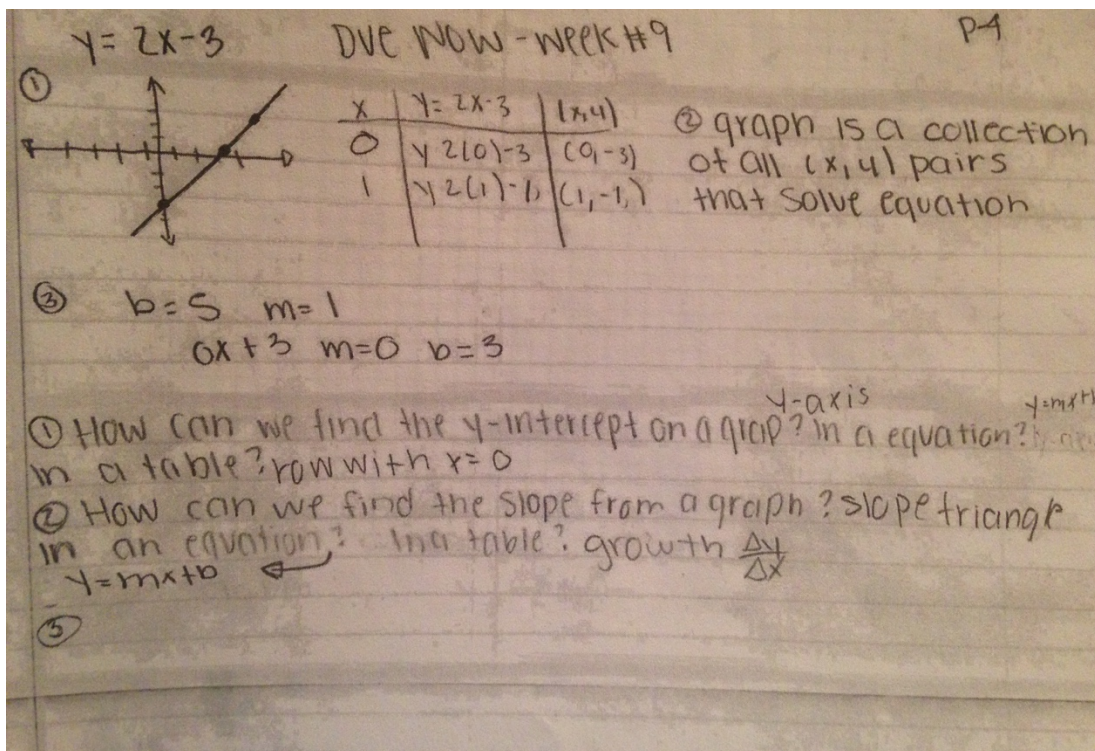 y = 2x-3 DUE NOW - week #9 P-4
①
x | y = 2x-3 | (x,y)
0 | y 2(0)-3 | (0,-3)
1 | y 2(1)- | (1,-1,)
② graph is a collection
of all (x,y) pairs
that solve equation
③ b=5 m=1
0x+3 m=0 b=3
y-axis y=mx+
① How can we find the y-intercept on a grap? in a equation?
in a table? row with x=0
② How can we find the slope from a graph? slope triangle
in an equation? in a table? growth Δy/Δx
y=mx+b
③